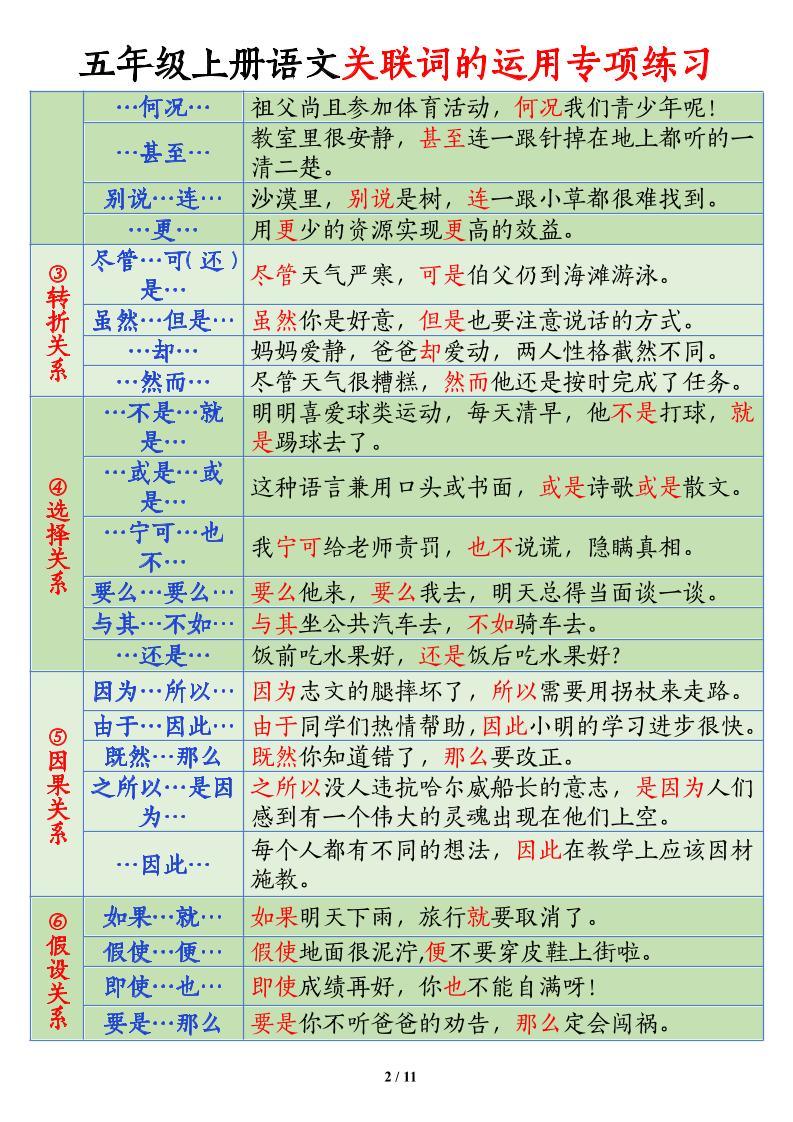 五年级上册语文关联词的运用专项练习
…何况… 祖父尚且参加体育活动，何况我们青少年呢！
…甚至… 教室里很安静，甚至连一跟针掉在地上都听的一
清二楚。
别说…连… 沙漠里，别说是树，连一跟小草都很难找到。
…更… 用更少的资源实现更高的效益。
③转折关系
尽管…可（还）
是… 尽管天气严寒，可是伯父仍到海滩游泳。
虽然…但是… 虽然你是好意，但是也要注意说话的方式。
…却… 妈妈爱静，爸爸却爱动，两人性格截然不同。
…然而… 尽管天气很糟糕，然而他还是按时完成了任务。
④选择关系
…不是…就 明明喜爱球类运动，每天清早，他不是打球，就
是… 是踢球去了。
…或是…或
是… 这种语言兼用口头或书面，或是诗歌或是散文。
…宁可…也
不… 我宁可给老师责罚，也不说谎，隐瞒真相。
要么…要么… 要么他来，要么我去，明天总得当面谈一谈。
与其…不如… 与其坐公共汽车去，不如骑车去。
…还是… 饭前吃水果好，还是饭后吃水果好？
⑤因果关系
因为…所以… 因为志文的腿摔坏了，所以需要用拐杖来走路。
由于…因此… 由于同学们热情帮助，因此小明的学习进步很快。
既然…那么 既然你知道错了，那么要改正。
之所以…是因 之所以没人违抗哈尔威船长的意志，是因为人们
为… 感到有一个伟大的灵魂出现在他们上空。
…因此… 每个人都有不同的想法，因此在教学上应该因材
施教。
⑥假设关系
如果…就… 如果明天下雨，旅行就要取消了。
假使…便… 假使地面很泥泞,便不要穿皮鞋上街啦。
即使…也… 即使成绩再好，你也不能自满呀！
要是…那么 要是你不听爸爸的劝告，那么定会闯祸。
2 / 11